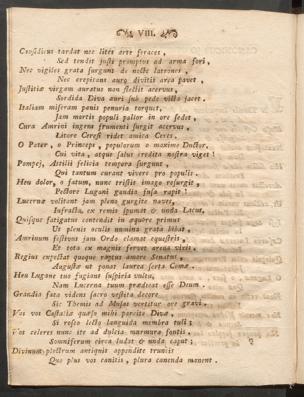 VIII.
Causidicus tardat nec lites arte feraces,
Sed tendit justi promptus ad arma fori,
Nec vigiles grata surgunt de nocte latrones,
Nec erepitans auro divitis arca pavet,
Justitiæ virgam auratus non flectit acervus,
Sordida Diva auri sub pede victa jacet.
Italiam miseram panis penuria torquet,
Jam mortis populi pallor in ore sedet,
Cura Amrini ingens frumenti surgit acervus,
Litore Ceresi ridet amica Ceres,
O Pater, o Princeps, populorum o maxime Ductor,
Cui vita, atque salus credita nostra viget!
Pompej, Astrilli felicia tempora surgunt,
Qui tantum curant vivere pro populis.
Heu dolor, o fatum, nunc tristis imago resurgit,
Pectore Lugani gaudia fusa rapit!
Lucernæ volitant jam pleno gurgite naves,
Infracta, ex remis spumat & unda Lacus,
Quisque fatigatus contendit in æquore primus
Ut plenis oculis numina grata bibat,
Amrinum festivus jam Ordo clamat equestris,
Et tota ex magnis fervet arena viris,
Regius expectat quoque raptus amore Senatus
Augusta ut ponat laurea serta Comæ.
Heu Lugane tuo fugiunt suspiria vultu,
Nam Lucerna tuum præcipit esse Deum.
Grandia fata videns sacro vestita decore
Sic Themis ad Musas vertitur ore gravi.
Vos vos Castaliæ quæso mihi parcite Divæ,
Si rosco lecto languida membra tuli;
Vos celeres nunc ite ad dulcia murmura fontis,
Somniferum circa ludat & unda caput;
Divinum plectrum antiquis appendite truncis
Quo plus vos canitis, plura canenda manent.